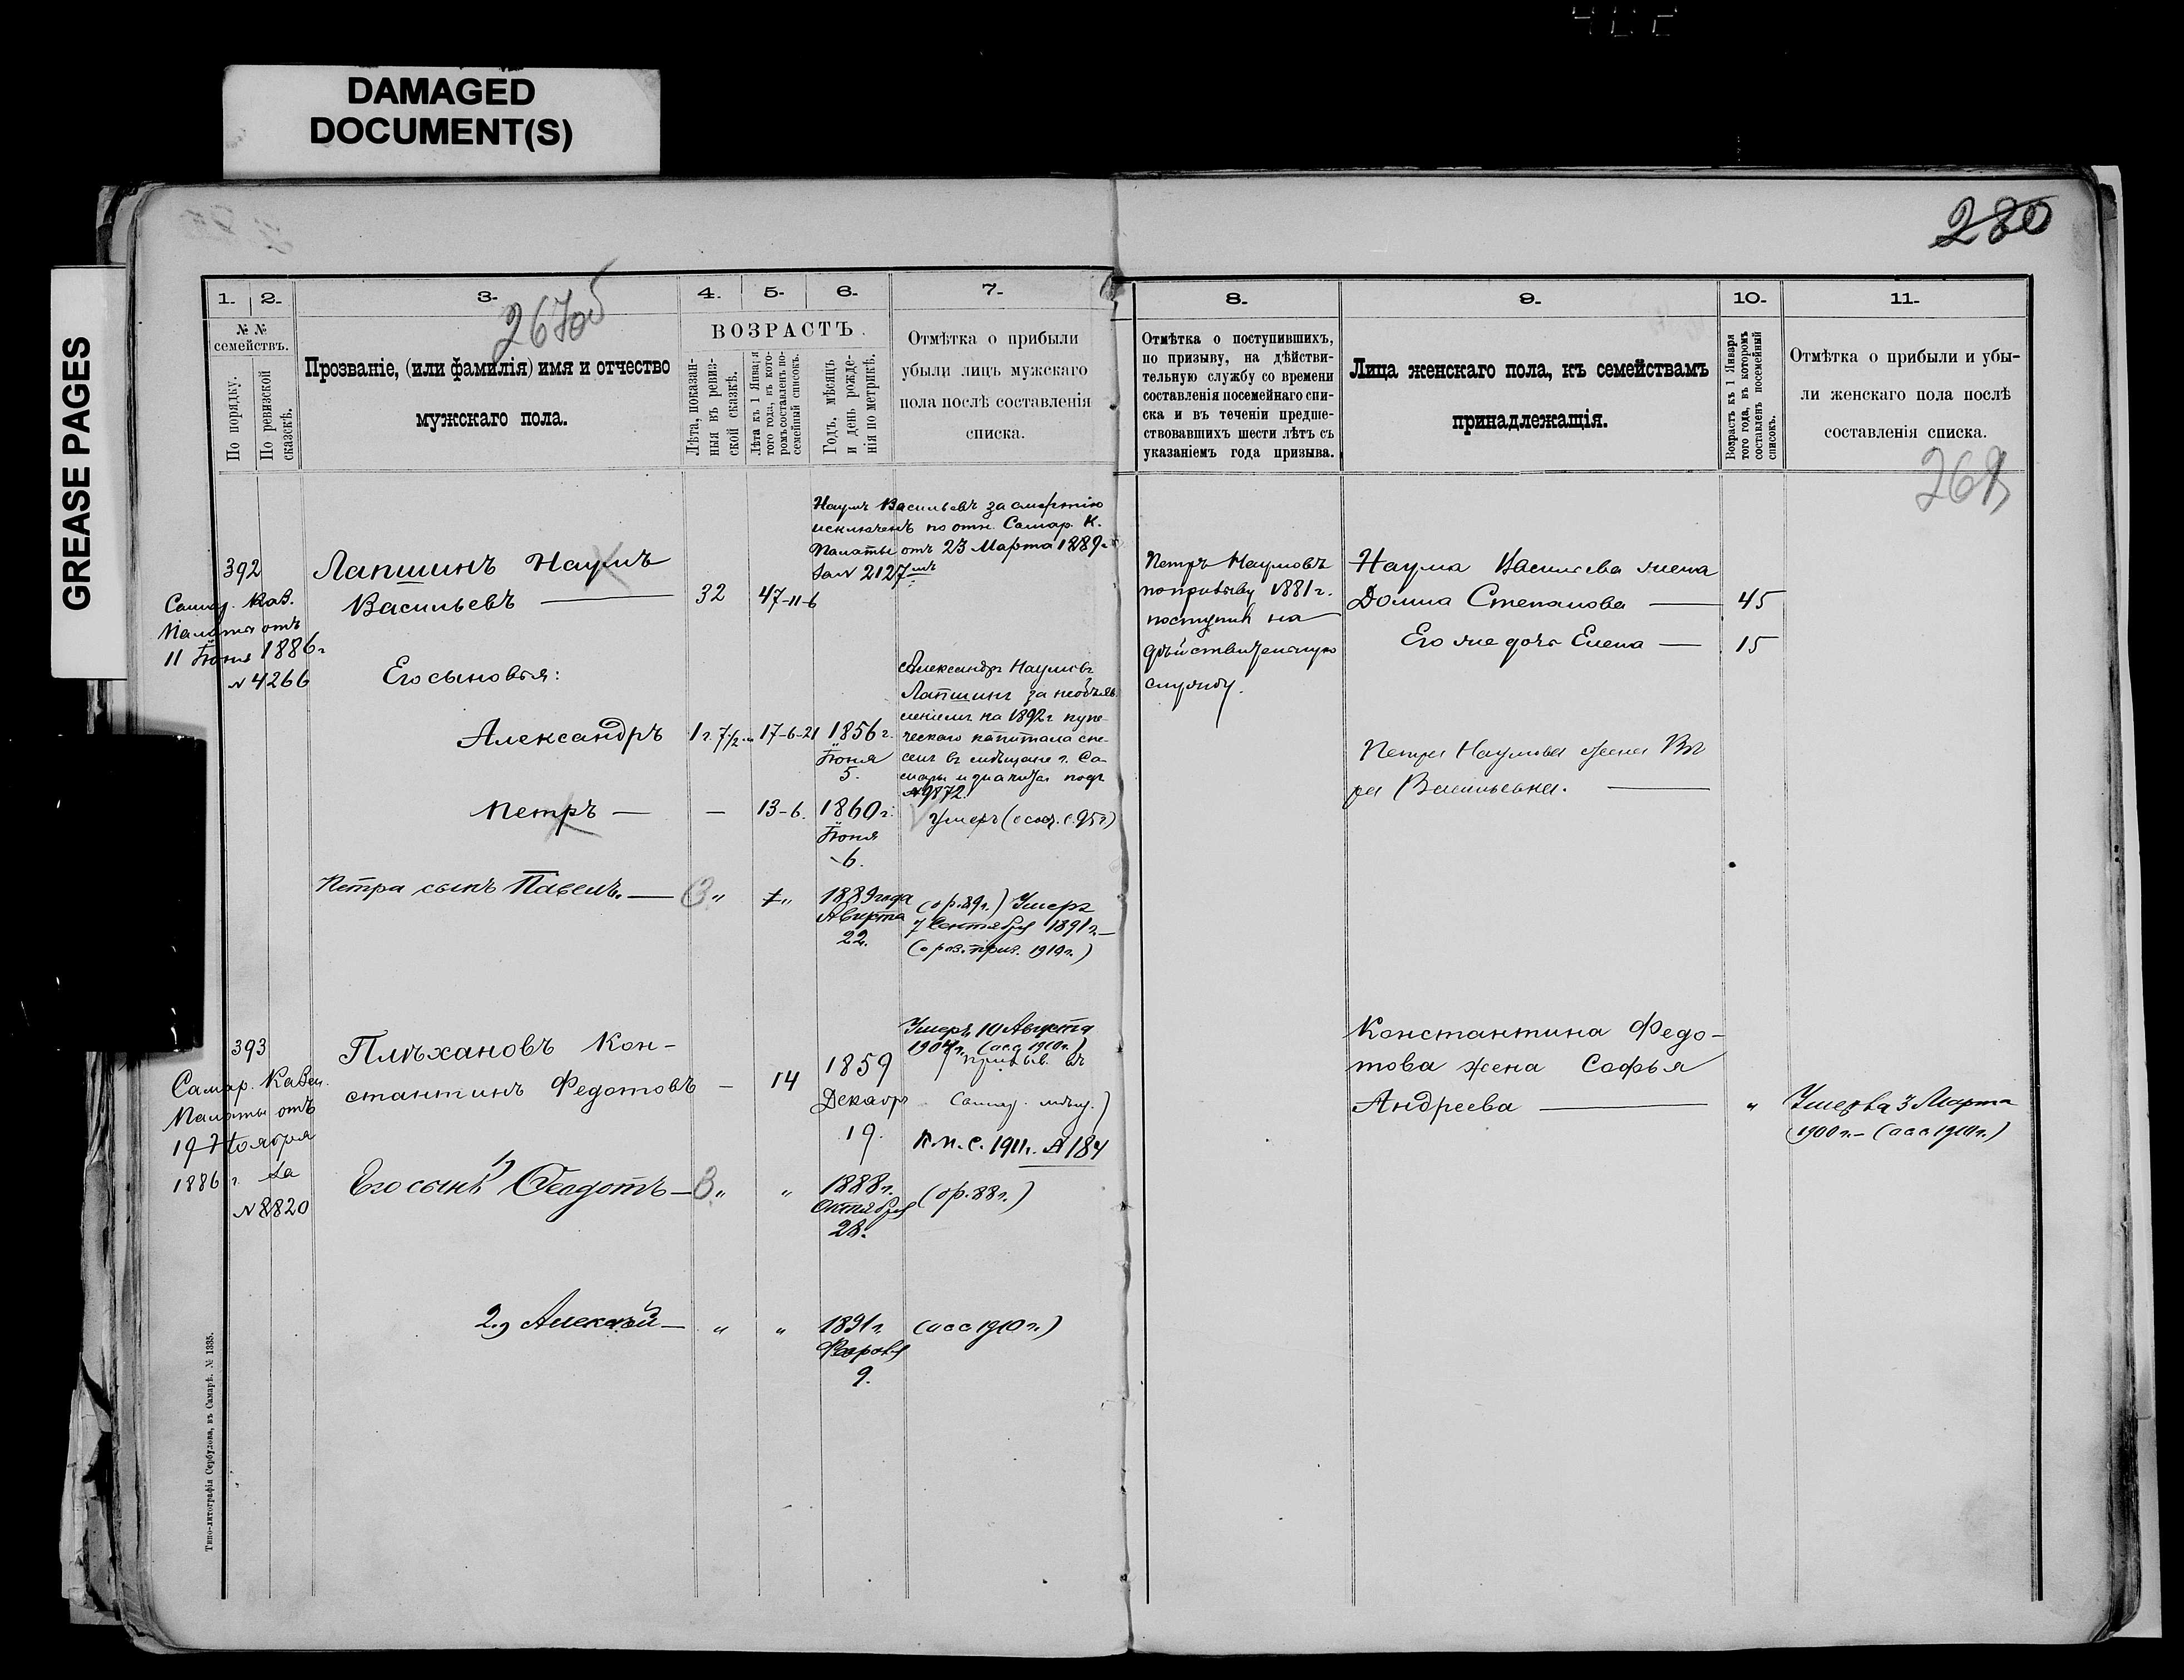 DAMAGED
DOCUMENT(S)
GREASE PAGES
280
1. 2. 3. 4. 5. 6. 7. 8. 9. 10. 11.
267об
268
№ №
семействъ.
По порядку.
По ревизской
сказскѣ.
Прозваніе, (или фамилія) имя и отчество
мужскаго пола.
ВОЗРАСТЪ.
Лѣта, показан-
ныя въ ревиз-
ской сказкѣ.
Лѣта къ 1 Января
того года, въ кото-
ромъ составленъ по-
семейный списокъ.
Годъ, мѣсяцъ
и день рожде-
нія по метрикѣ.
Отмѣтка о прибыли
убыли лицъ мужскаго
пола послѣ составленія
списка.
Отмѣтка о поступившихъ,
по призыву, на дѣйстви-
тельную службу со времени
составленія посемейнаго спи-
ска и въ теченіи предше-
ствовавшихъ шести лѣтъ съ
указаніемъ года призыва.
Лица женскаго пола, къ семействамъ
принадлежащія.
Возрастъ къ 1 Января
того года, въ которомъ
составленъ посемейный
списокъ.
Отмѣтка о прибыли и убы-
ли женскаго пола послѣ
составленія списка.
392
Самар. Каз.
Палаты отъ
11 Іюня 1886 г
№ 4266
Лапшинъ Наумъ
Васильевъ
32
47-11-6
Наумъ Васильевъ за смертію
исключенъ по отн. Самар. К.
Палаты отъ 23 Марта 1889 г
за № 2127
Его сыновья:
Александръ
1 г. 7 1/2 м
17-6-21
1856 г.
Іюня
5.
Александръ Наумовъ
Лапшинъ за необъяв-
леніемъ на 1892 г купе-
ческаго капитала
въ мѣщане г. Са-
мары и подъ
№ 9872.
Петръ —
—
13-6.
1860 г.
Іюня
6.
Умеръ
Петра сынъ Павелъ. —
1889 года
Августа
22.
(ор. 89 г.) Умеръ
7 Сентября 1891 г. —
Петръ Наумовъ
по призыву 1881 г.
поступилъ на
дѣйствительную
службу.
Наума Васильева жена
Домна Степанова —
45
Его же дочь Елена —
15
Петра Наумова жена Вѣ
ра Васильевна. —
393
Самар. Казен.
Палаты отъ
19 Ноября
1886 г. за
№ 8820
Плѣхановъ Кон-
стантинъ Федотовъ —
14
1859
Декабр
19.
Умеръ 10 Августа
К. п. с. 1911 г. № 184
Его сынъ 1) Федотъ —
1888 г.
Октября
28.
(ор. 88 г.)
2) Алексѣй —
1891 г.
Февраля
9.
Константина Федо-
това жена Софья
Андреева —
Умерла 3 Марта
1900 г. —
Типо-литографія Сербулова, въ Самарѣ. № 1335.